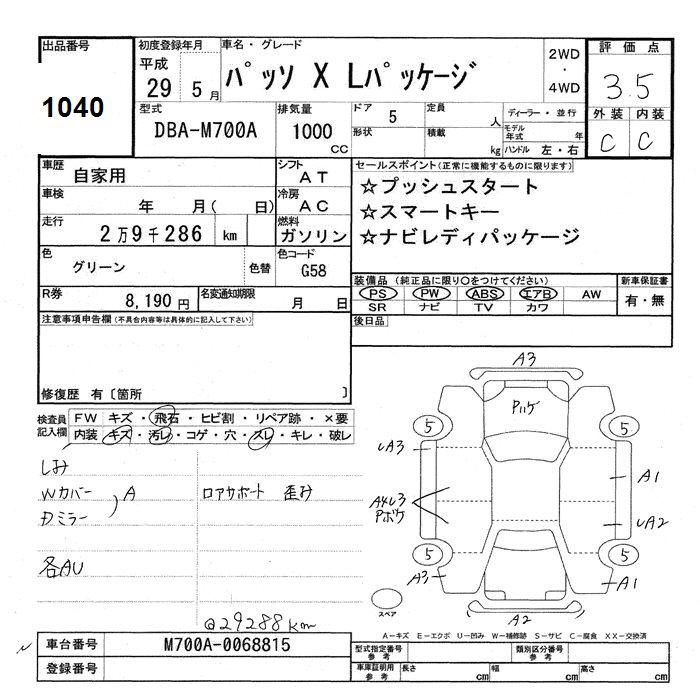 出品番号
1040
初度登録年月
平成
29 5月
車名・グレード
パッソ X Lパッケージ
2WD
・
4WD
評価点
3.5
外装 内装
C C
型式
DBA-M700A
排気量
1000
CC
ドア 5
形状
定員 人
積載 kg
ディーラー・並行
モデル年式 年
ハンドル 左・右
車歴
自家用
シフト
AT
車検
年 月( 日)
冷房
AC
走行
2万9千286 km
燃料
ガソリン
色
グリーン
色替
色コード
G58
R券
8,190円
名変通知期限
月 日
セールスポイント(正常に機能するものに限ります)
☆プッシュスタート
☆スマートキー
☆ナビレディパッケージ
装備品 (純正品に限り○をつけてください)
PS PW ABS エアB AW
SR ナビ TV カワ
新車保証書
有・無
後日品
注意事項申告欄(不具合内容等は具体的に記入して下さい)
修復歴 有〔箇所 〕
検査員
記入欄
FW キズ・飛石・ヒビ割・リペア跡・×要
内装 キズ・汚レ・コゲ・穴・スレ・キレ・破レ
しみ
Wカバー
Dミラー
A
ロアサポート 歪み
各AU
@29288km
A3
Pハゲ
5
5
UA3
A1
A4U3
Pボケ
UA2
5
5
A3
A1
A2
スペア
A-キズ E-エクボ U-凹み W-補修跡 S-サビ C-腐食 XX-交換済
車台番号
M700A-0068815
登録番号
型式指定番号
参考
類別区分番号
参考
車庫証明用
参考
長さ cm
幅 cm
高さ cm